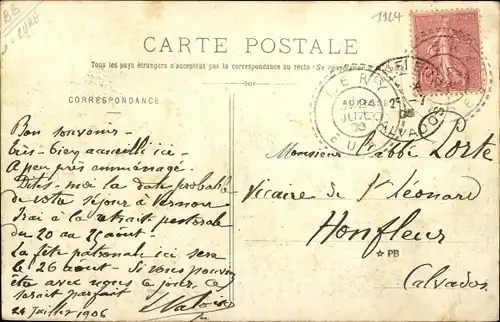 BB
CURÉ
1264
CARTE POSTALE
Tous les pays étrangers n'acceptent pas la correspondance au recto (Se
CORRESPONDANCE
Bon souvenir -
très-bien accueilli ici -
A peu près emménagé.
Dites-moi la date probable
de votre séjour à Vernon
Irai à la retraite pastorale
du 20 au 25 août -
La fête patronale ici sera
le 26 août - Si vous pouviez
être avec nous ce jour, ce
serait parfait
24 Juillet 1906
LERY
24
EURE
CALVADOS
Monsieur l'abbé Lorte
Vicaire de St Léonard
Honfleur
★ PB
Calvados